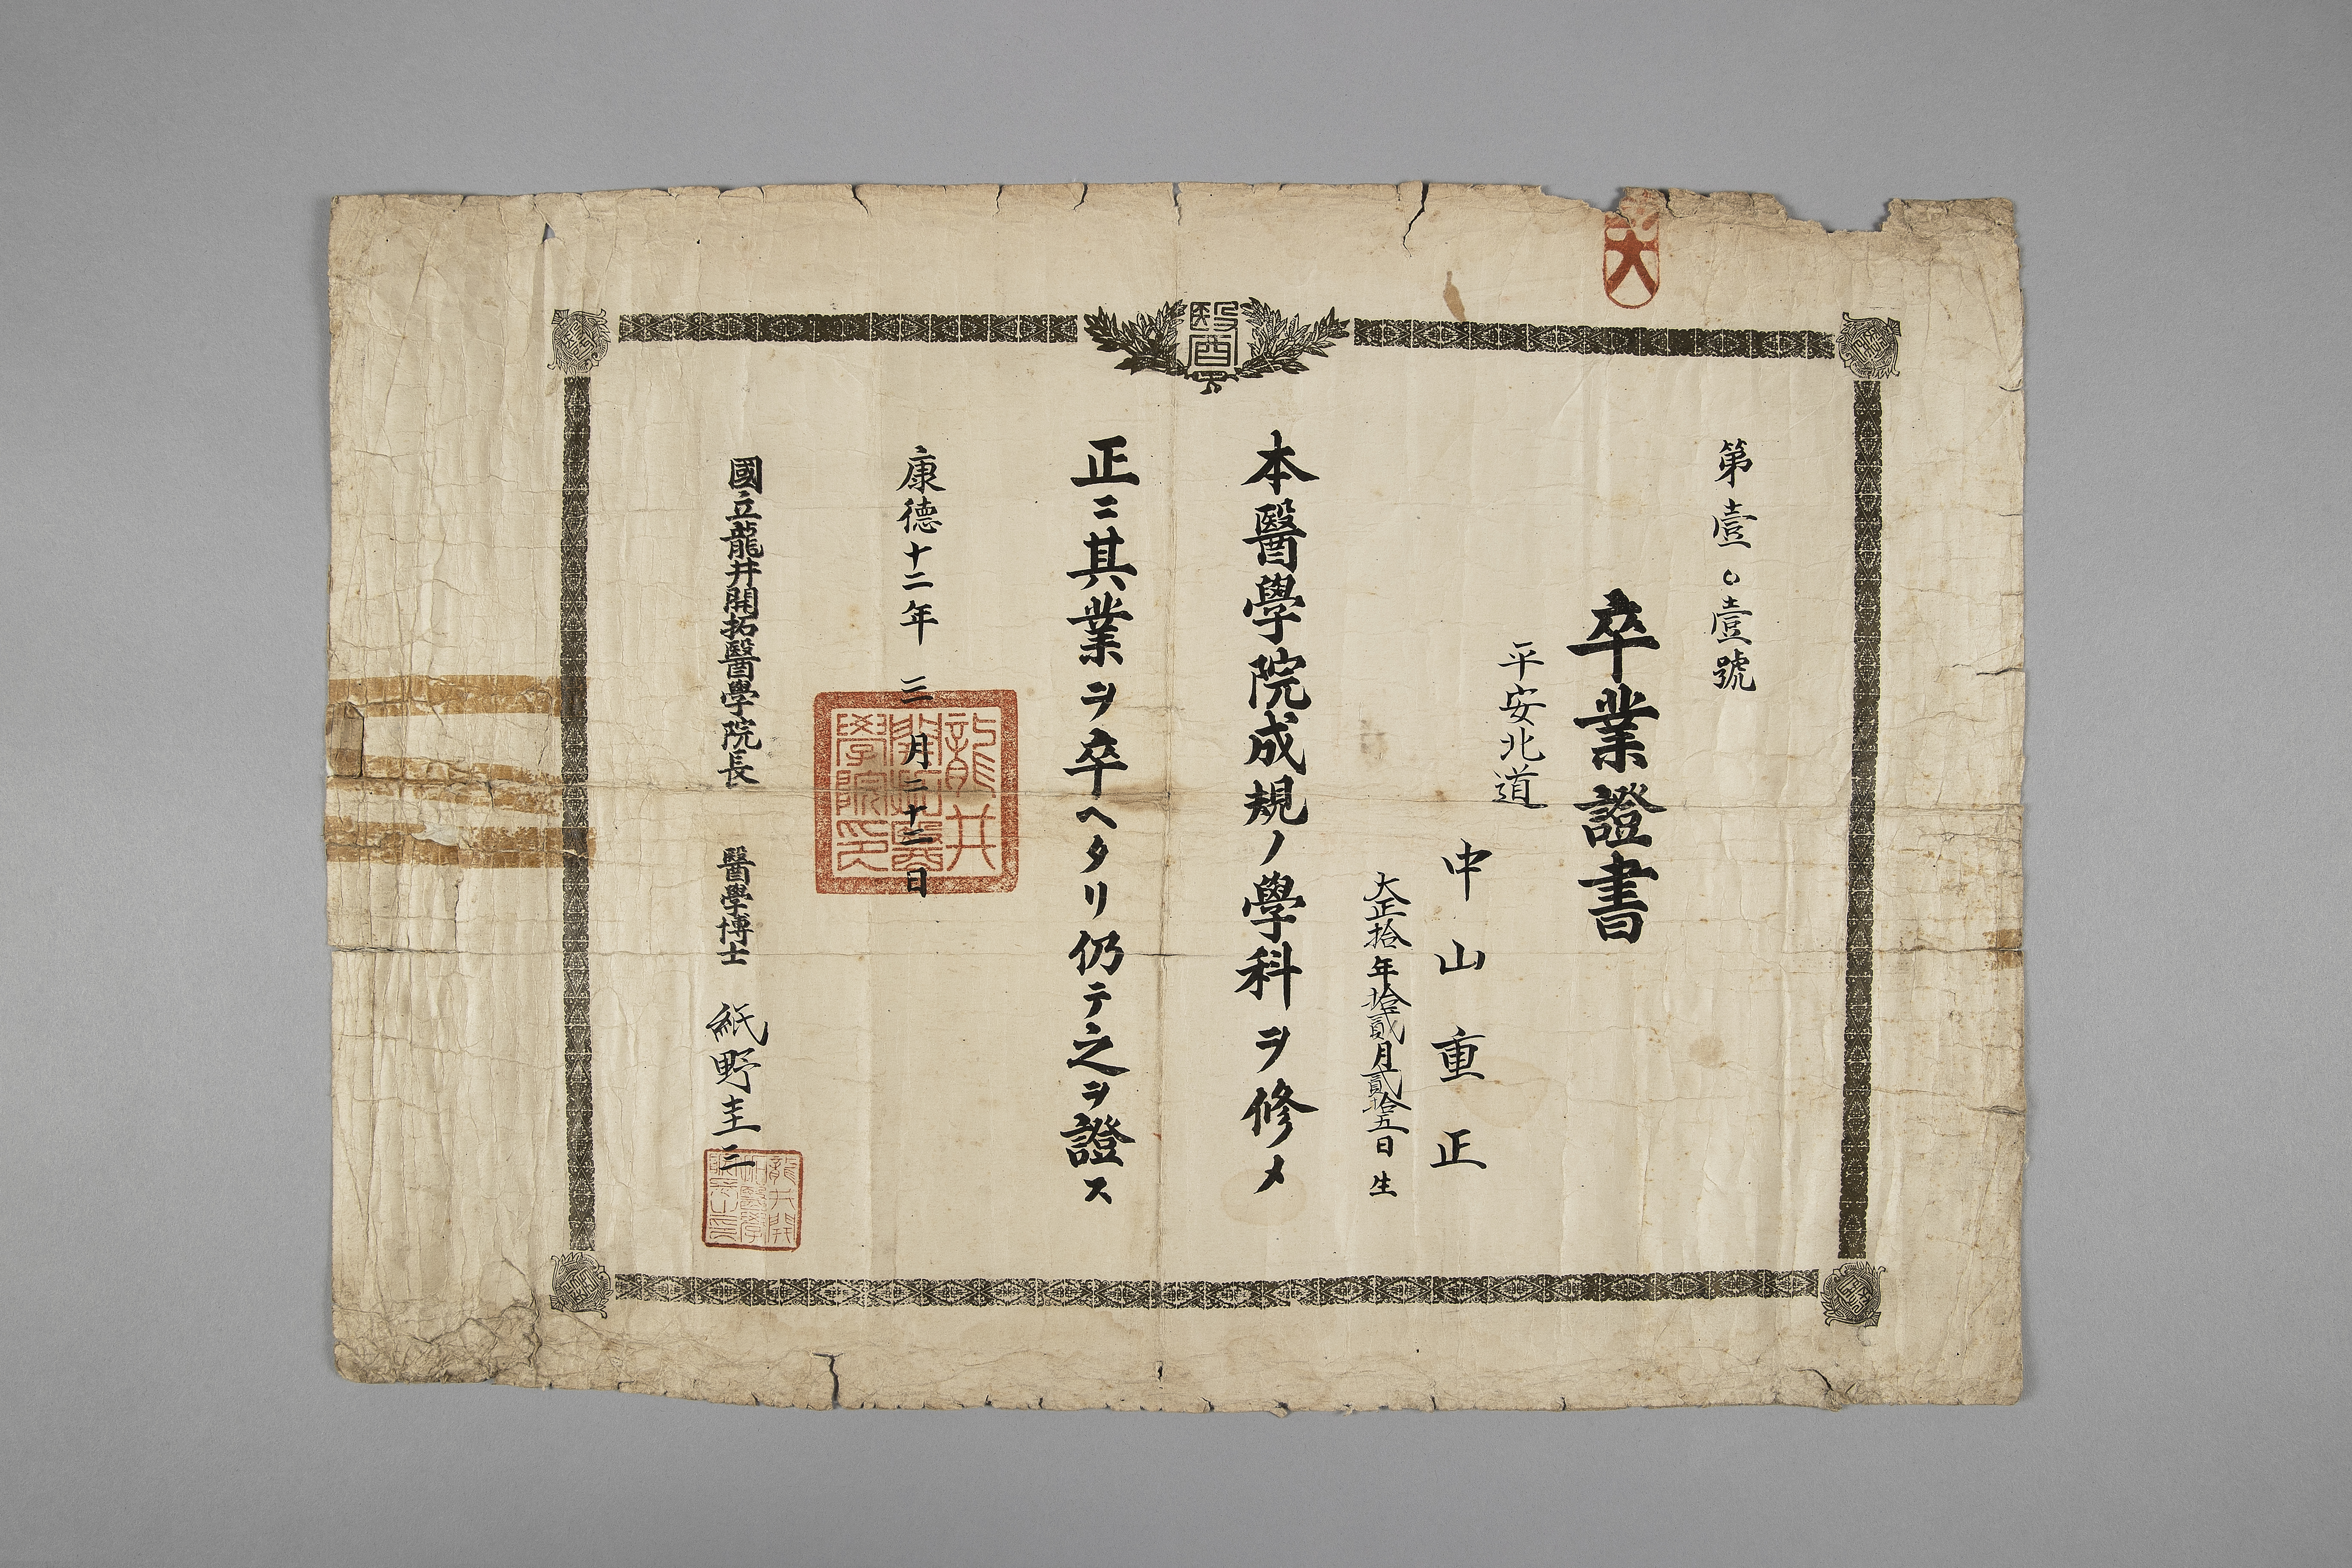 醫
第壹〇壹號
卒業證書
平安北道
中山重正
大正拾年拾貳月貳拾五日生
本醫學院成規ノ學科ヲ修メ
正ニ其業ヲ卒ヘタリ仍テ之ヲ證ス
康德十二年三月二十三日
龍井開拓醫學院印
國立龍井開拓醫學院長 醫學博士 紙野圭三